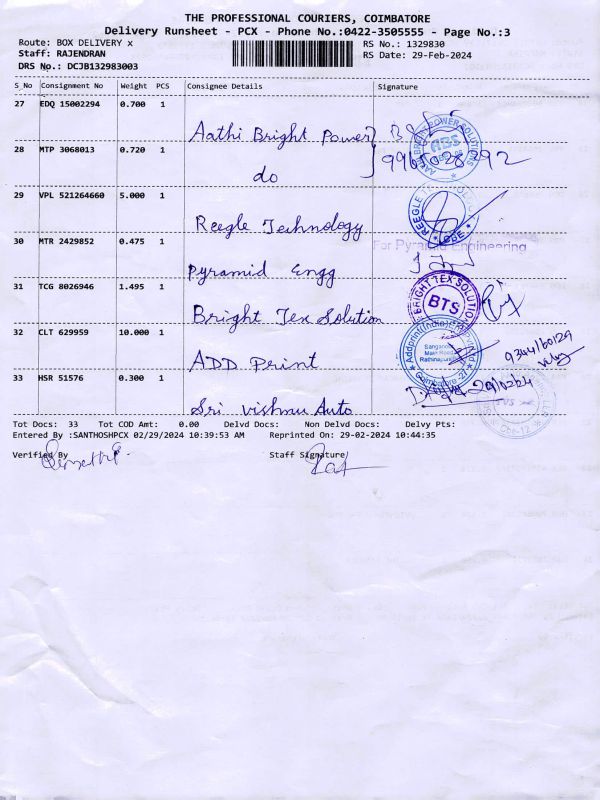 THE PROFESSIONAL COURIERS, COIMBATORE
Delivery Runsheet - PCX - Phone No.:0422-3505555 - Page No.:3
Route: BOX DELIVERY x RS No.: 1329830
Staff: RAJENDRAN RS Date: 29-Feb-2024
DRS No.: DCJB132983003
S_No Consignment No Weight PCS Consignee Details Signature
27 EDQ 15002294 0.700 1
Aathi Bright Power
28 MTP 3068013 0.720 1
do
29 VPL 521264660 5.000 1
Reegle Technology
30 MTR 2429852 0.475 1 For Pyramid Engineering
Pyramid Engg
31 TCG 8026946 1.495 1
BRIGHT TEX SOLUTION
BTS
Bright Tex Solution
32 CLT 629959 10.000 1
9344160129
ADD Print
33 HSR 51576 0.300 1
29/02/24
Sri Vishnu Auto
Tot Docs: 33 Tot COD Amt: 0.00 Delvd Docs: Non Delvd Docs: Delvy Pts:
Entered By :SANTHOSHPCX 02/29/2024 10:39:53 AM Reprinted On: 29-02-2024 10:44:35
Verified By Staff Signature